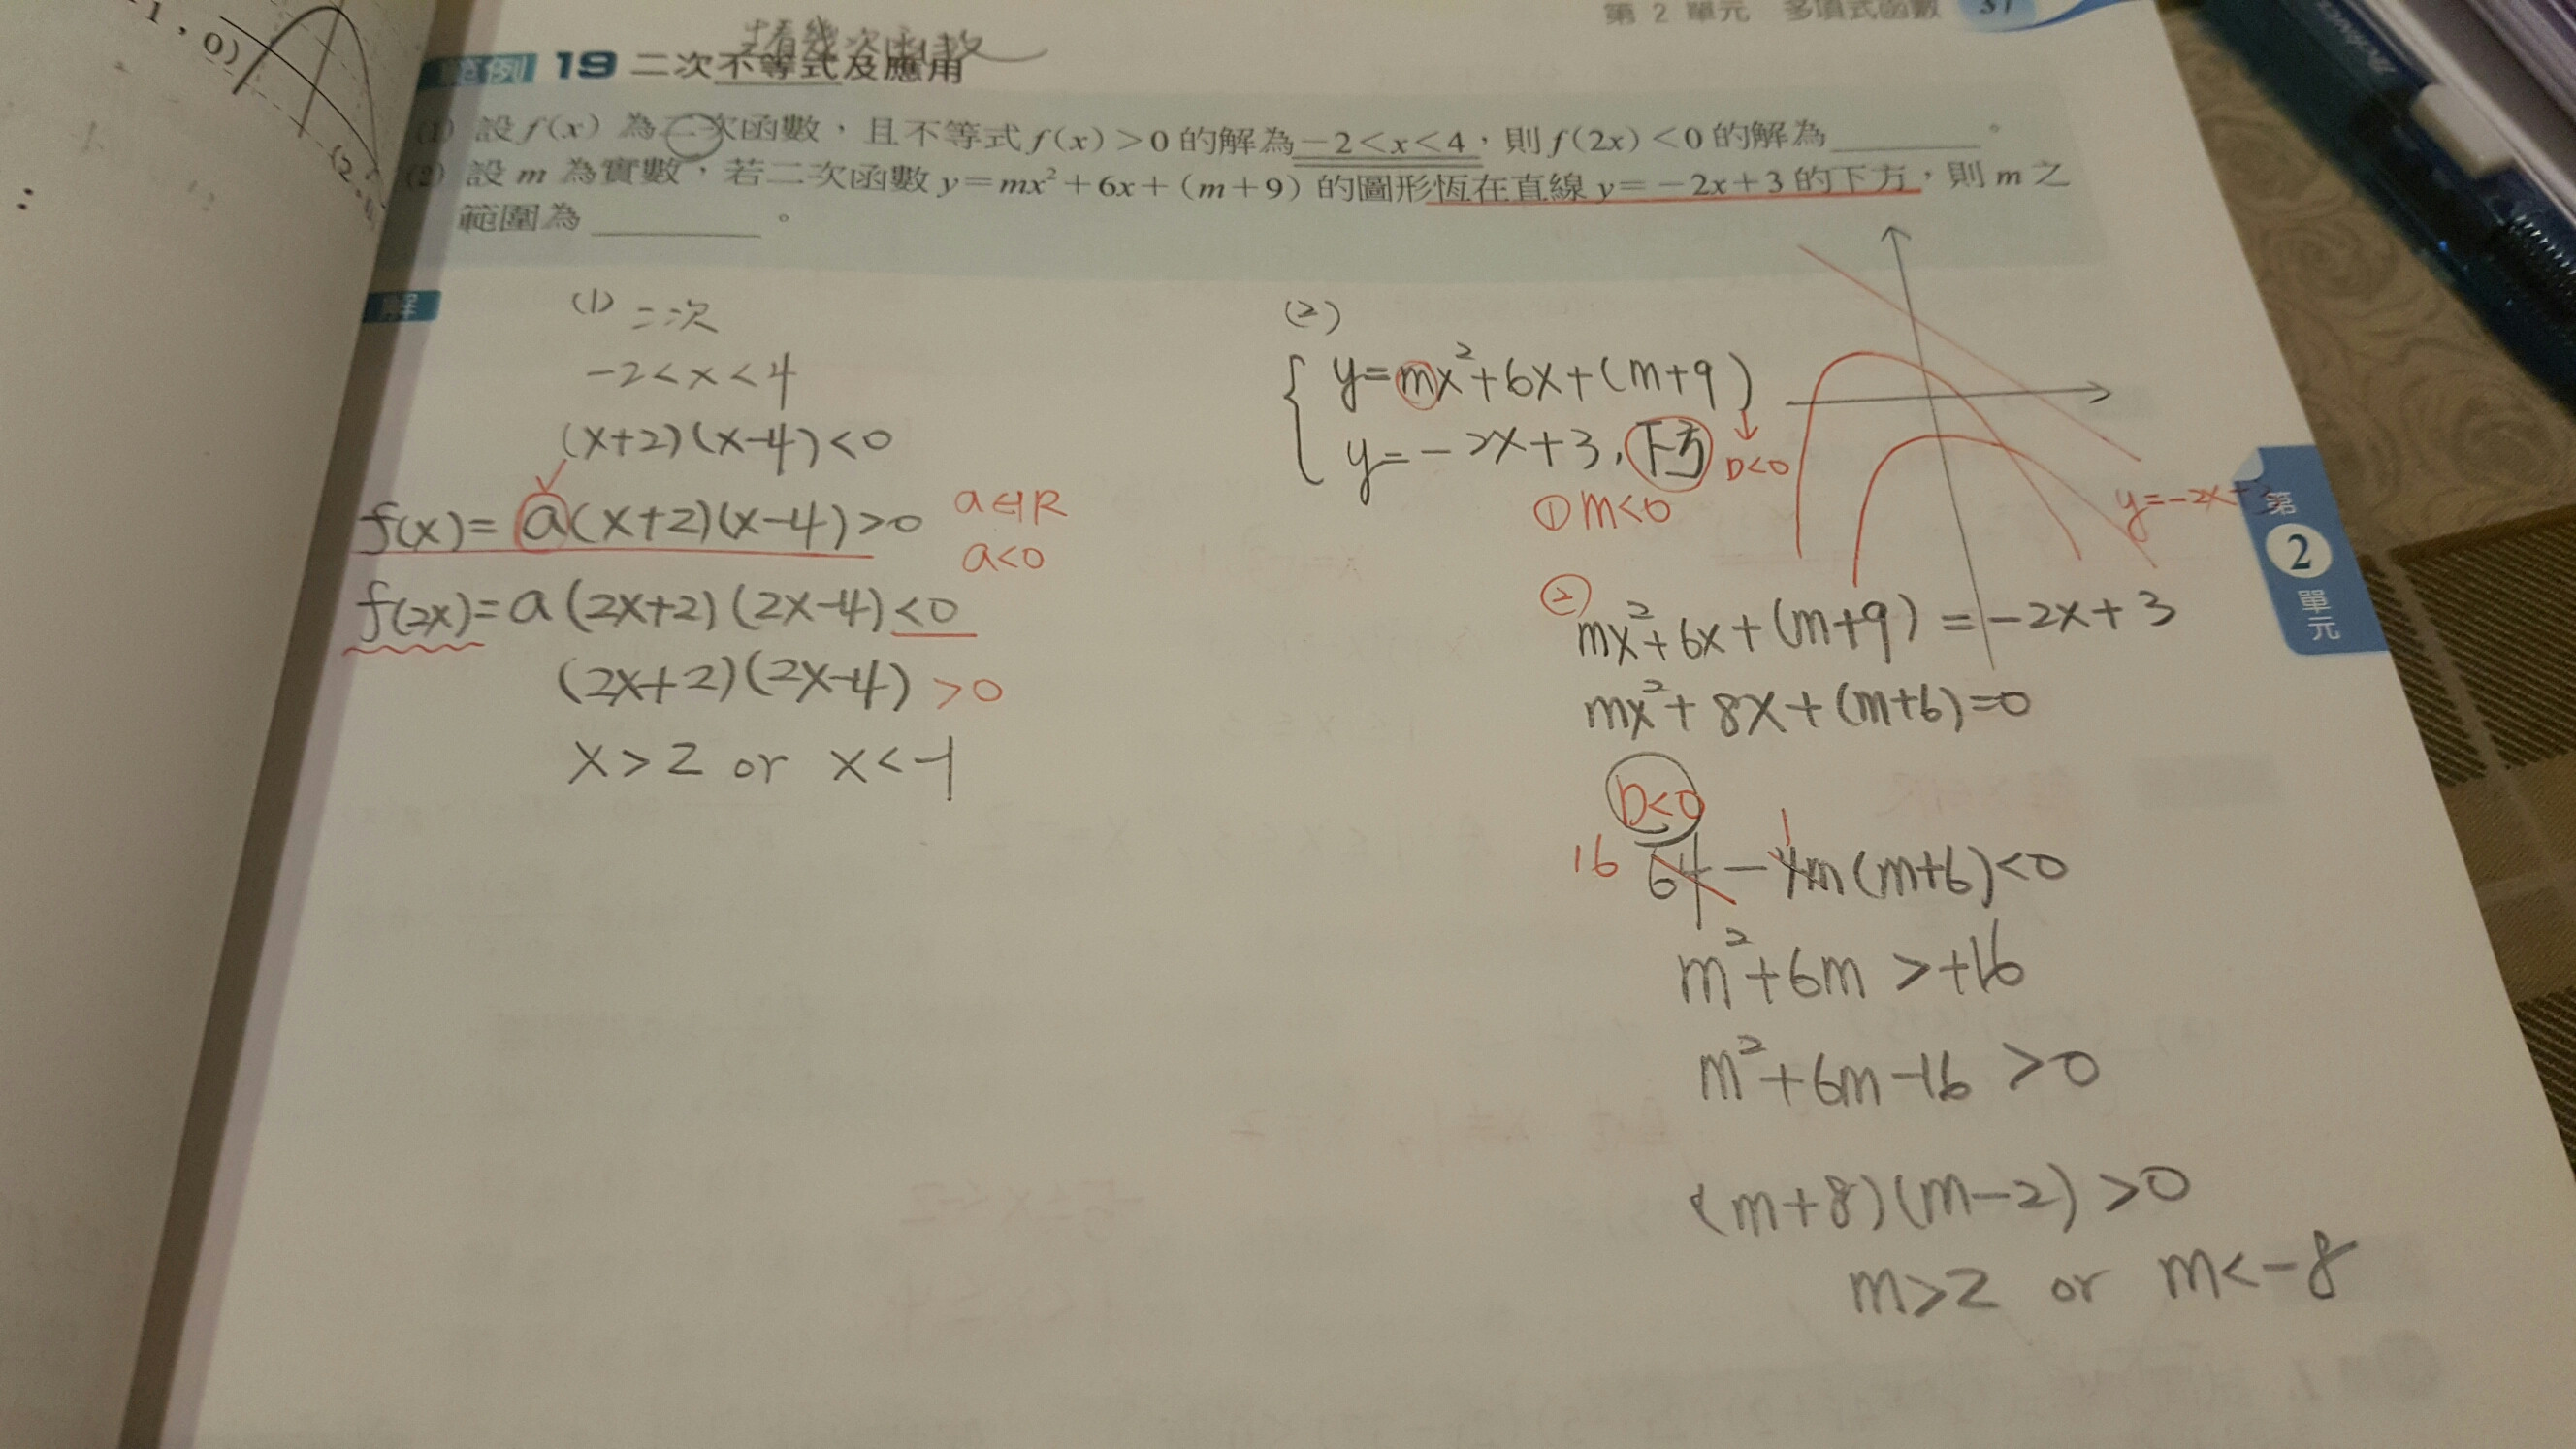 1 , 0)
(2, 0)
第 2 單元 多項式函數 37
看幾次函數
範例 19 二次不等式及應用
(1) 設 f(x) 為二次函數，且不等式 f(x)>0 的解為 −2<x<4，則 f(2x)<0 的解為________。
(2) 設 m 為實數，若二次函數 y=mx²+6x+(m+9) 的圖形恆在直線 y=−2x+3 的下方，則 m 之
範圍為________。
解
(1) 二次
−2<x<4
(x+2)(x−4)<0
f(x)=a(x+2)(x−4)>0 a∈R
a<0
f(2x)=a(2x+2)(2x−4)<0
(2x+2)(2x−4)>0
x>2 or x<−1
(2)
y=mx²+6x+(m+9)
y=−2x+3, 下方 D<0
① m<0
y=−2x+
② mx²+6x+(m+9)=−2x+3
mx²+8x+(m+6)=0
D<0
16 64−4m(m+6)<0
1
m²+6m>+16
m²+6m−16>0
(m+8)(m−2)>0
m>2 or m<−8
第
2
單
元